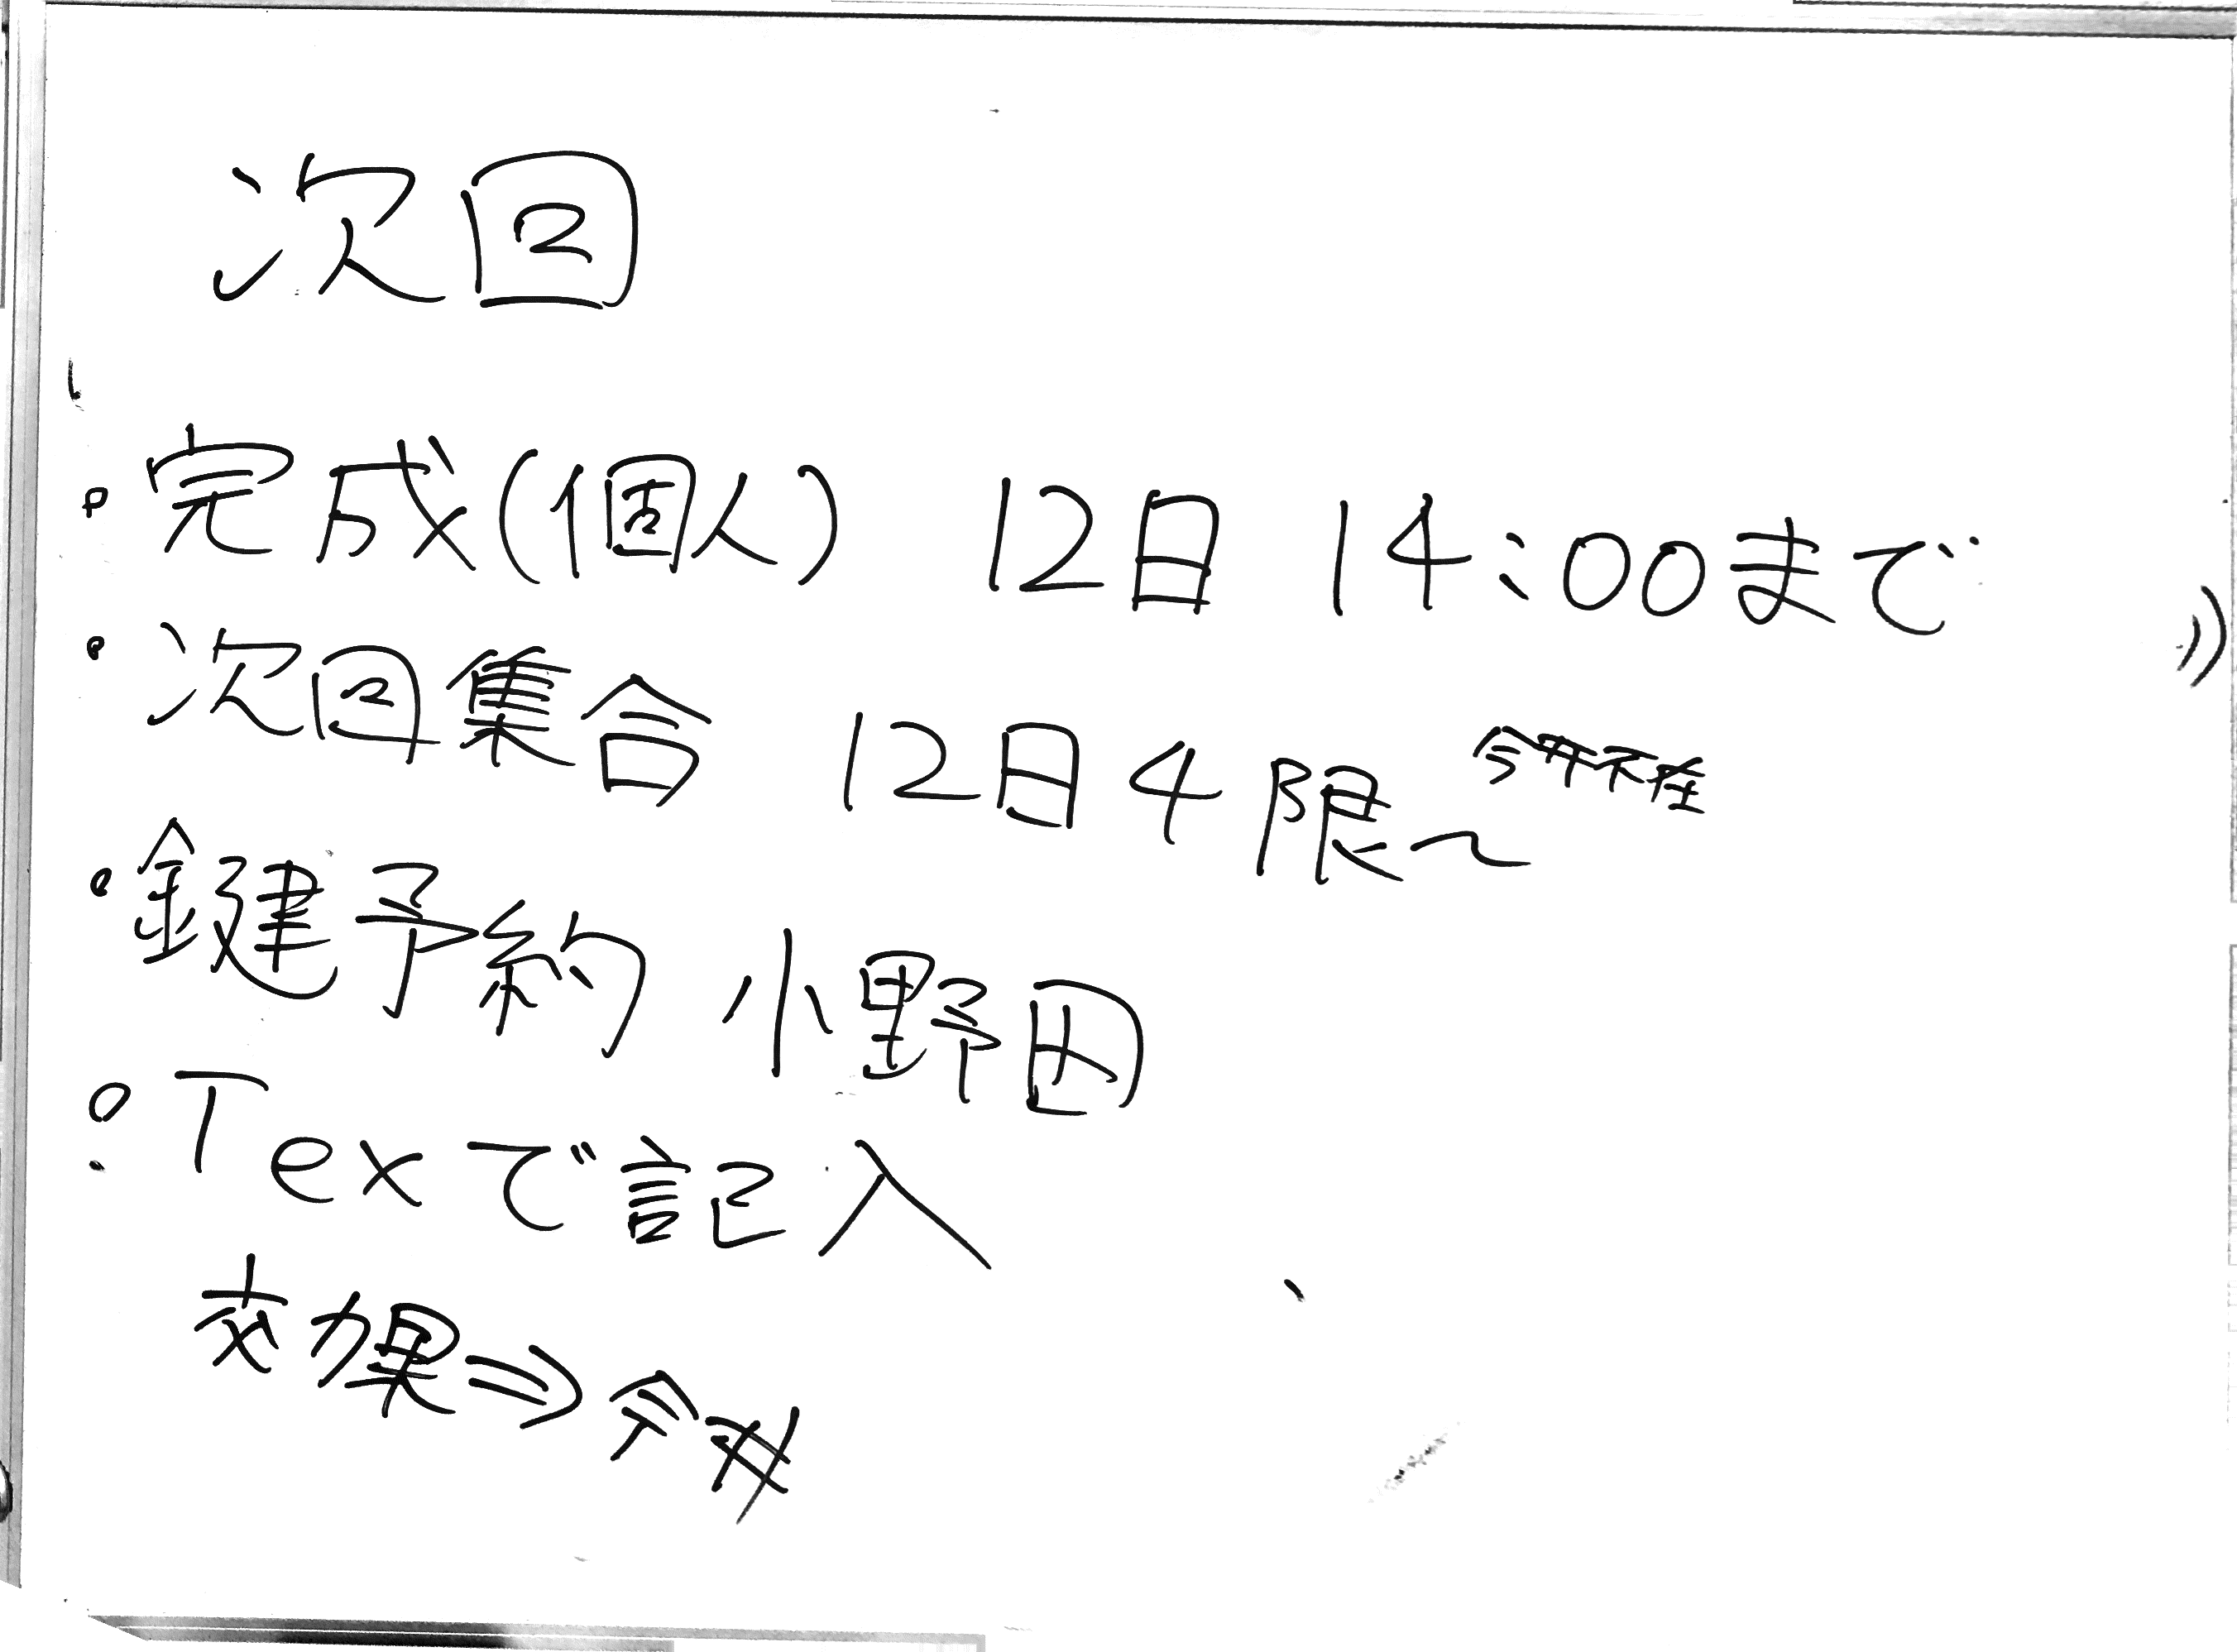 次回
・完成(個人) 12日 14:00まで
・次回集合 12日4限~ 今井不在
・鍵予約 小野田
・Texで記入
効果⇒今井